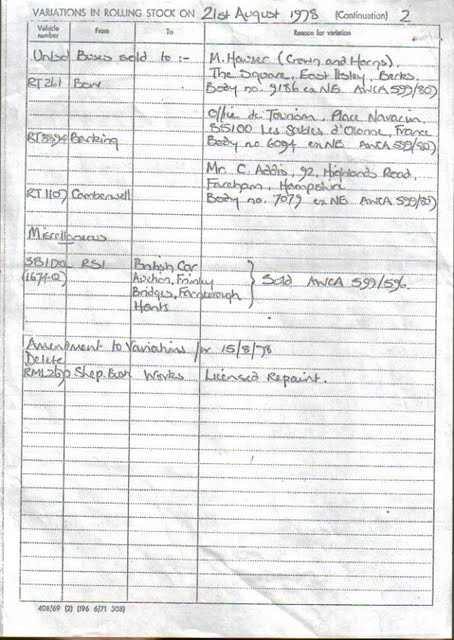 VARIATIONS IN ROLLING STOCK ON 21st August 1978 (Continuation) 2
Vehicle number From To Reason for variation
Unlsd Buses sold to :- M. Hawser (Crown and Horns),
The Square, East Ilsley, Berks.
RT241 Bow Body no. 9186 ex NE AWCA 599/80)
Office de Tourism, Place Navarin,
85100 Les Sables d'Olonne, France
RT3394 Barking Body no 6094 ex NE AWCA 599/80)
Mr. C. Addis, 92, Highlands Road,
Fareham, Hampshire
RT1107 Camberwell Body no. 7079 ex NE AWCA 599/80)
Miscellaneous
RS1 British Car
(1674-Q) Auction, Frimley Sold AWCA 599/596.
Bridges, Farnborough
Hants
Amendment to Variations for 15/8/78
Delete
Shep. Bush Works Licensed Repaint.
408/69 (2) (196 6/71 308)